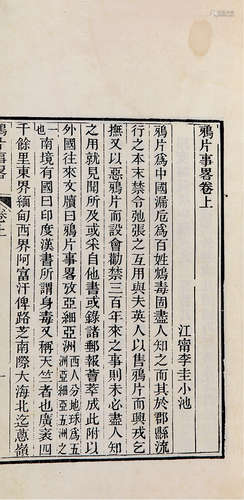 鴉片事畧卷上
江甯李圭小池
鴉片為中國漏卮為百姓鴆毒固盡人知之而其於郡縣流
行之本末禁令弛張之互用與夫英人以售鴉片而興戎乞
撫又以惡鴉片而設會勸禁三百年來之事則未必盡人知
之用就見聞所及或采自他書或錄諸郵報薈萃成此附以
外國往來文牘曰鴉片事畧攷亞細亞洲西人分地球為五洲亞細亞五洲之
一也南境有國曰印度漢書所謂身毒又稱天竺者也廣袤四
千餘里東界緬甸西界阿富汗俾路芝南際大海北迄蔥嶺
鴉片事畧
卷上